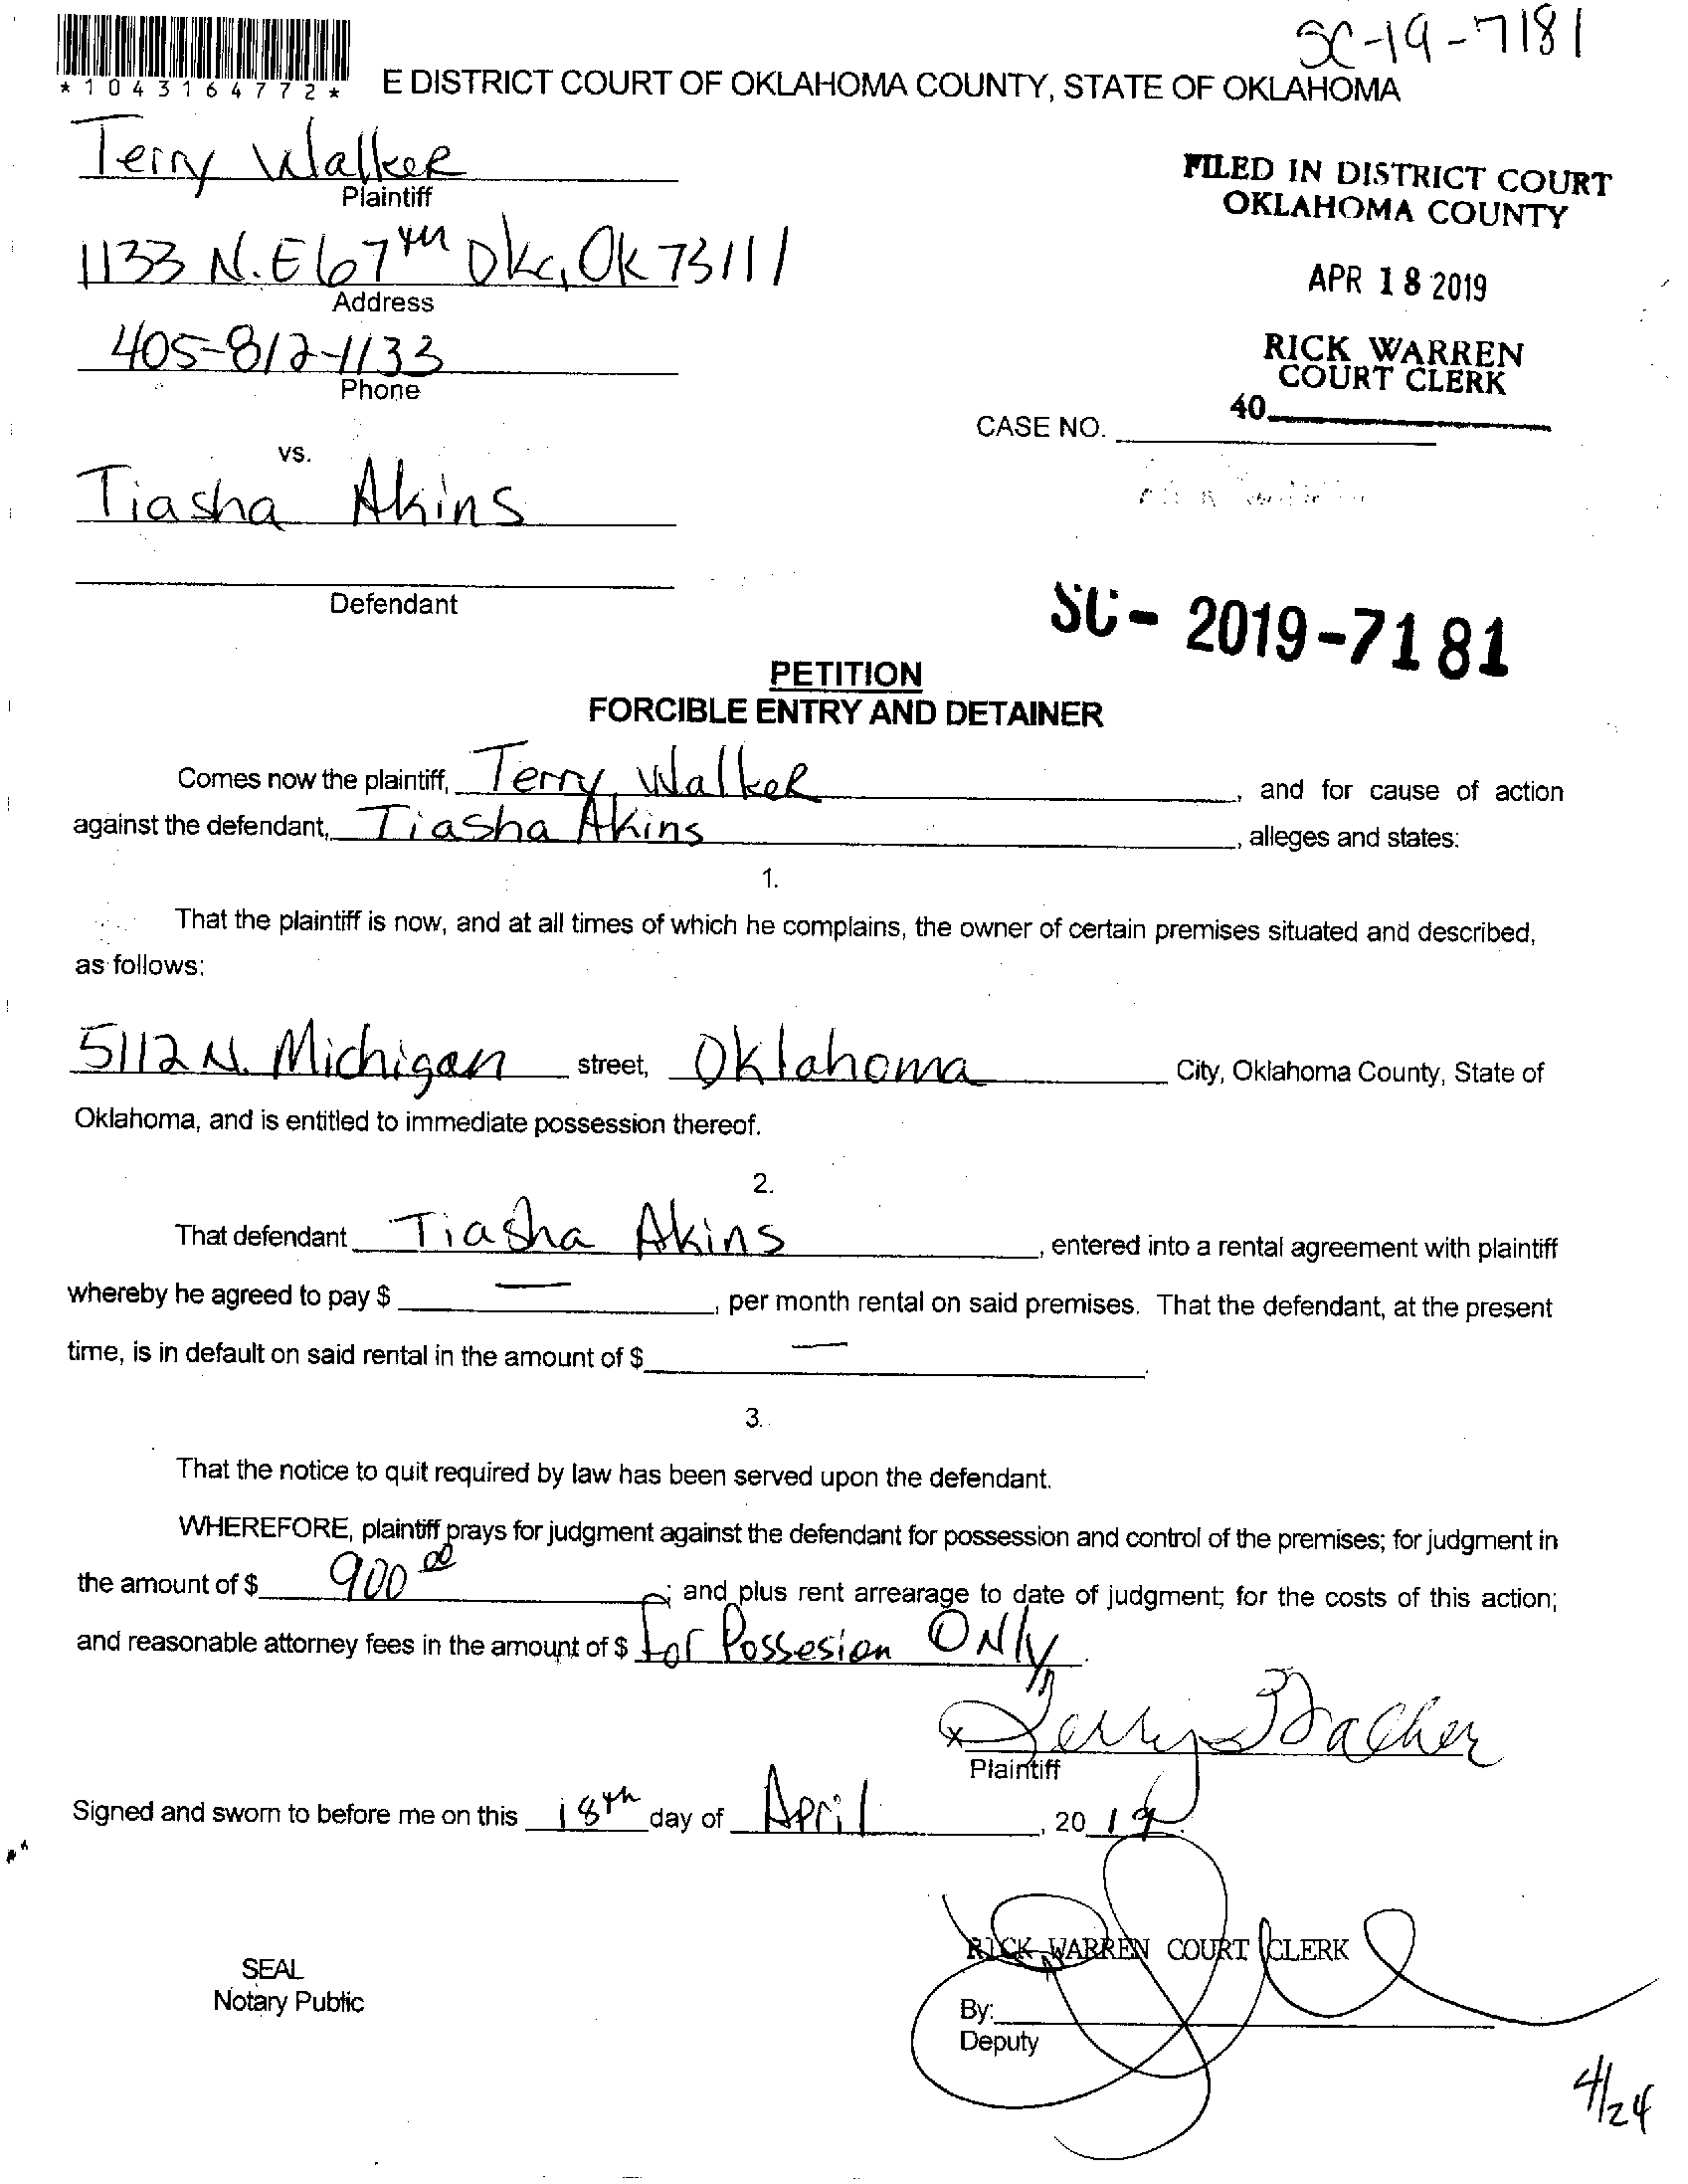 SC-19-7181
*1043164772*
E DISTRICT COURT OF OKLAHOMA COUNTY, STATE OF OKLAHOMA
Terry Walker
Plaintiff
FILED IN DISTRICT COURT
OKLAHOMA COUNTY
1133 N.E 67th Okc, Ok 73111
Address
APR 18 2019
405-812-1133
Phone
RICK WARREN
COURT CLERK
40
CASE NO.
vs.
Tiasha Akins
Defendant
SC- 2019-7181
PETITION
FORCIBLE ENTRY AND DETAINER
Comes now the plaintiff, Terry Walker, and for cause of action
against the defendant, Tiasha Akins, alleges and states:
1.
That the plaintiff is now, and at all times of which he complains, the owner of certain premises situated and described,
as follows:
5112 N. Michigan street, Oklahoma City, Oklahoma County, State of
Oklahoma, and is entitled to immediate possession thereof.
2.
That defendant Tiasha Akins, entered into a rental agreement with plaintiff
whereby he agreed to pay $ —, per month rental on said premises. That the defendant, at the present
time, is in default on said rental in the amount of $ —.
3.
That the notice to quit required by law has been served upon the defendant.
WHEREFORE, plaintiff prays for judgment against the defendant for possession and control of the premises; for judgment in
the amount of $ 900 00; and plus rent arrearage to date of judgment; for the costs of this action;
and reasonable attorney fees in the amount of $ For Possesion ONly.
x Terry Walker
Plaintiff
Signed and sworn to before me on this 18th day of April, 2019.
RICK WARREN COURT CLERK
SEAL
Notary Public
By:
Deputy
4/24